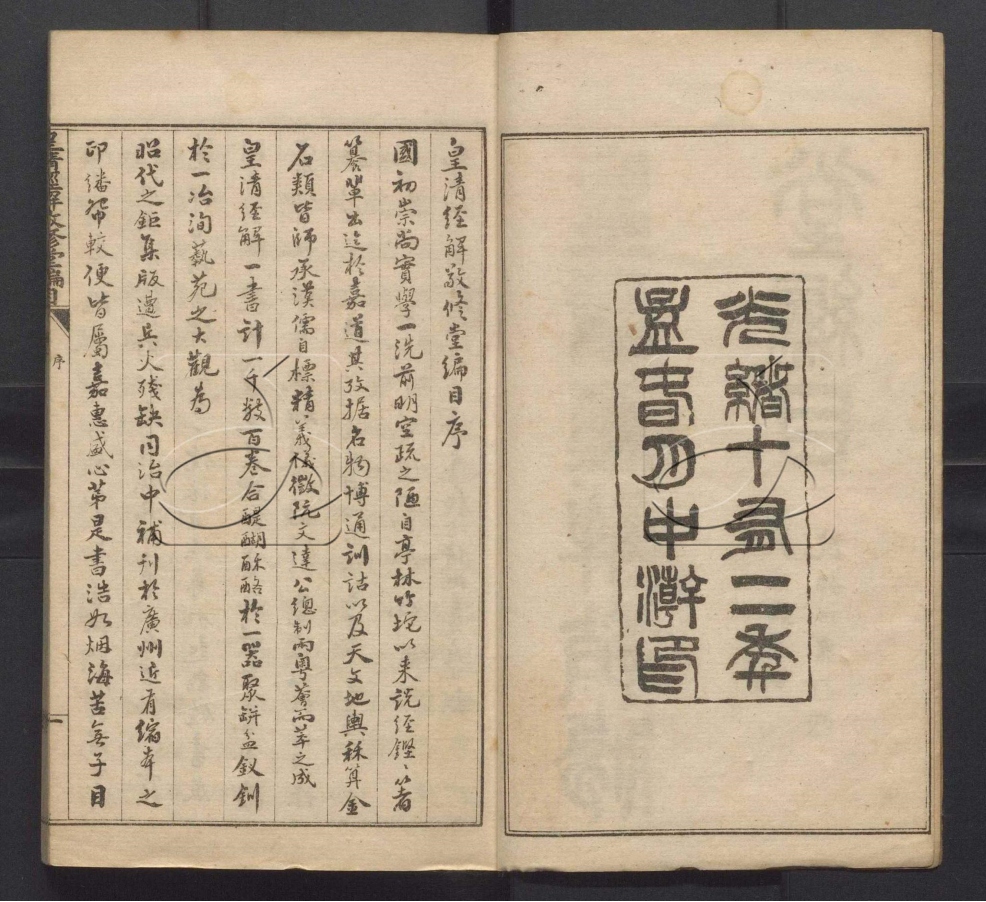 光緒十有二年
孟春月申澣印
皇清經解敬修堂編目序
國初崇尚實學一洗前明空疏之陋自亭林竹垞以来說經鏗〻著
篹輩出迄於嘉道其攷據名物博通訓詁以及天文地輿秝算金
石類皆師承漢儒自標精義儀徵阮文達公總制兩粵薈而萃之成
皇清經解一書計一千數百卷合醍醐酥酪於一器聚缾盆釵釧
於一冶洵藝苑之大觀為
昭代之鉅集版遭兵火殘缺同治中補刊於廣州近有縮本之
印繙帋較便皆屬嘉惠盛心苐是書浩如烟海苦無子目
皇清經解敬修堂編目
序
一